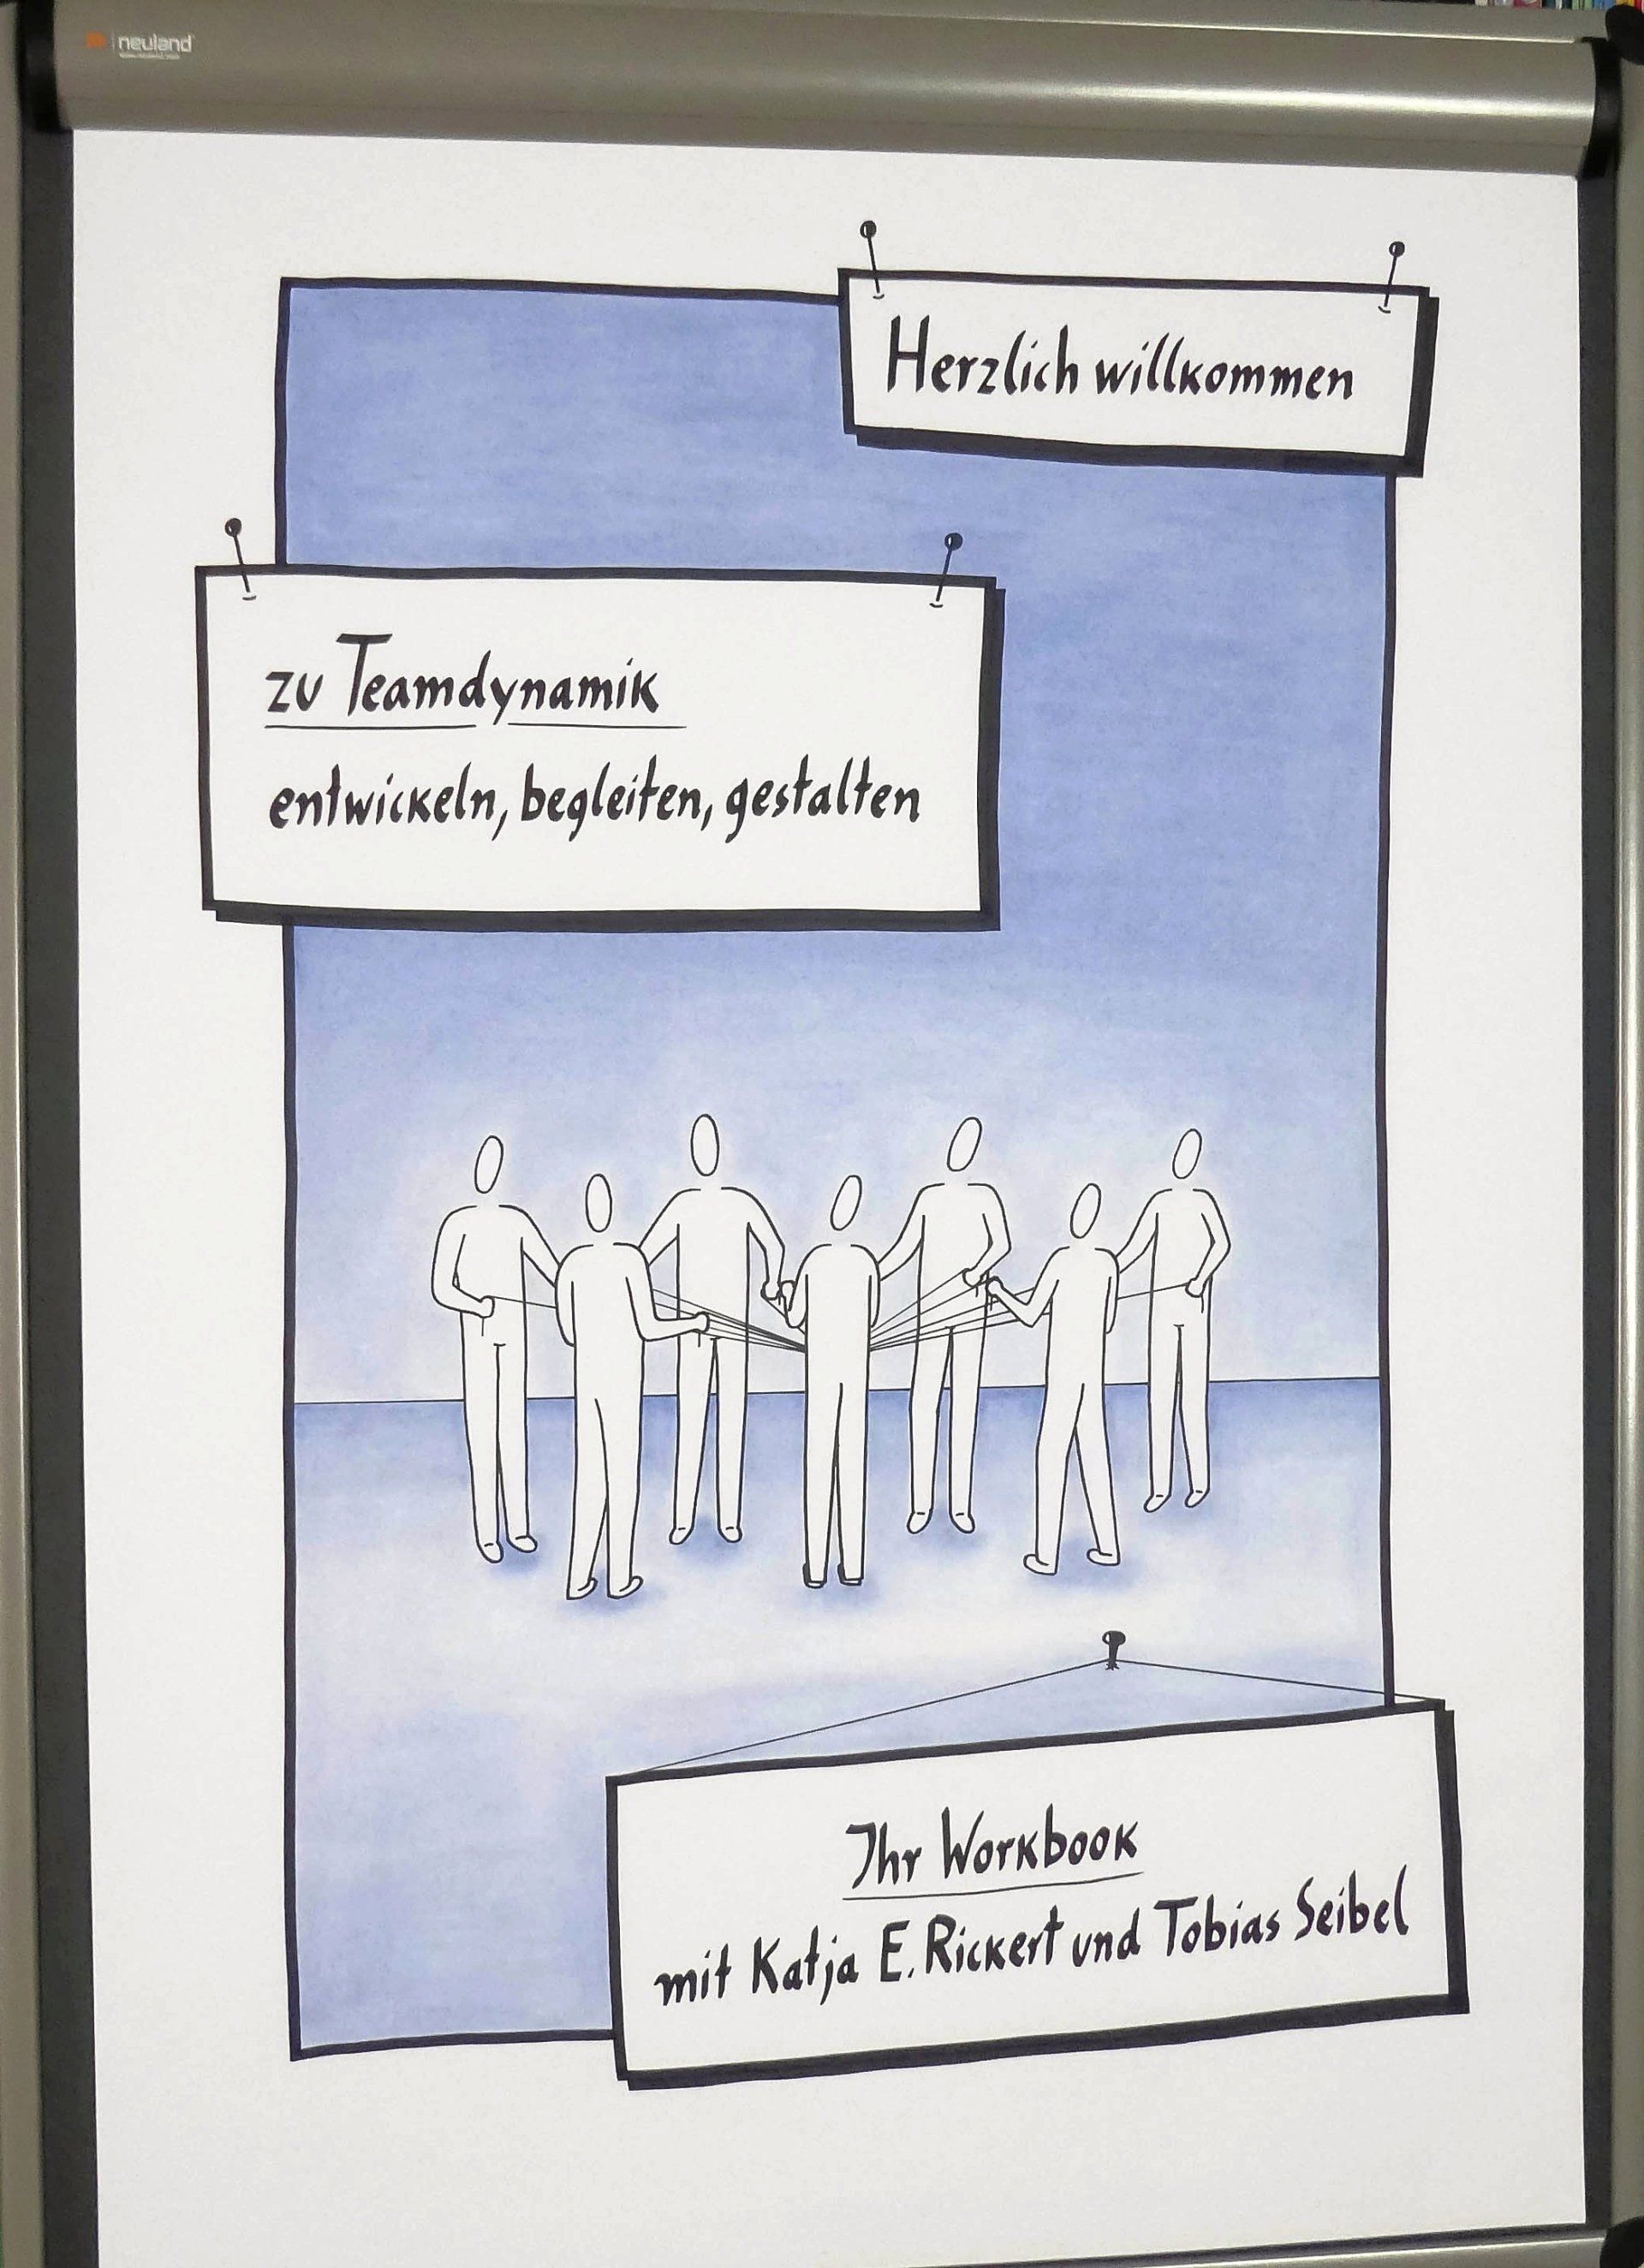 neuland
Herzlich willkommen
zu Teamdynamik
entwickeln, begleiten, gestalten
Ihr Workbook
mit Katja E. Rickert und Tobias Seibel